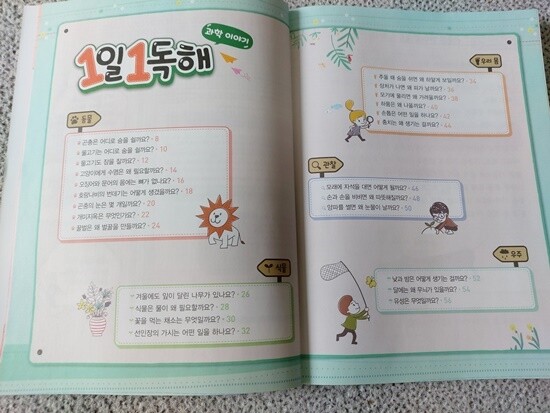 1일 1독해
과학 이야기
동물
곤충은 어디로 숨을 쉴까요? • 8
물고기는 어디로 숨을 쉴까요? • 10
물고기도 잠을 잘까요? • 12
고양이에게 수염은 왜 필요할까요? • 14
오징어와 문어의 몸에는 뼈가 없나요? • 16
호랑나비의 번데기는 어떻게 생겼을까요? • 18
곤충의 눈은 몇 개일까요? • 20
개미지옥은 무엇인가요? • 22
꿀벌은 왜 벌꿀을 만들까요? • 24
식물
겨울에도 잎이 달린 나무가 있나요? • 26
식물은 물이 왜 필요할까요? • 28
꽃을 먹는 채소는 무엇일까요? • 30
선인장의 가시는 어떤 일을 하나요? • 32
우리 몸
추울 때 숨을 쉬면 왜 하얗게 보일까요? • 34
상처가 나면 왜 피가 날까요? • 36
모기에 물리면 왜 가려울까요? • 38
하품은 왜 나올까요? • 40
손톱은 어떤 일을 하나요? • 42
충치는 왜 생기는 걸까요? • 44
관찰
모래에 자석을 대면 어떻게 될까요? • 46
손과 손을 비비면 왜 따뜻해질까요? • 48
양파를 썰면 왜 눈물이 날까요? • 50
우주
낮과 밤은 어떻게 생기는 걸까요? • 52
달에는 왜 무늬가 있을까요? • 54
유성은 무엇일까요? • 56